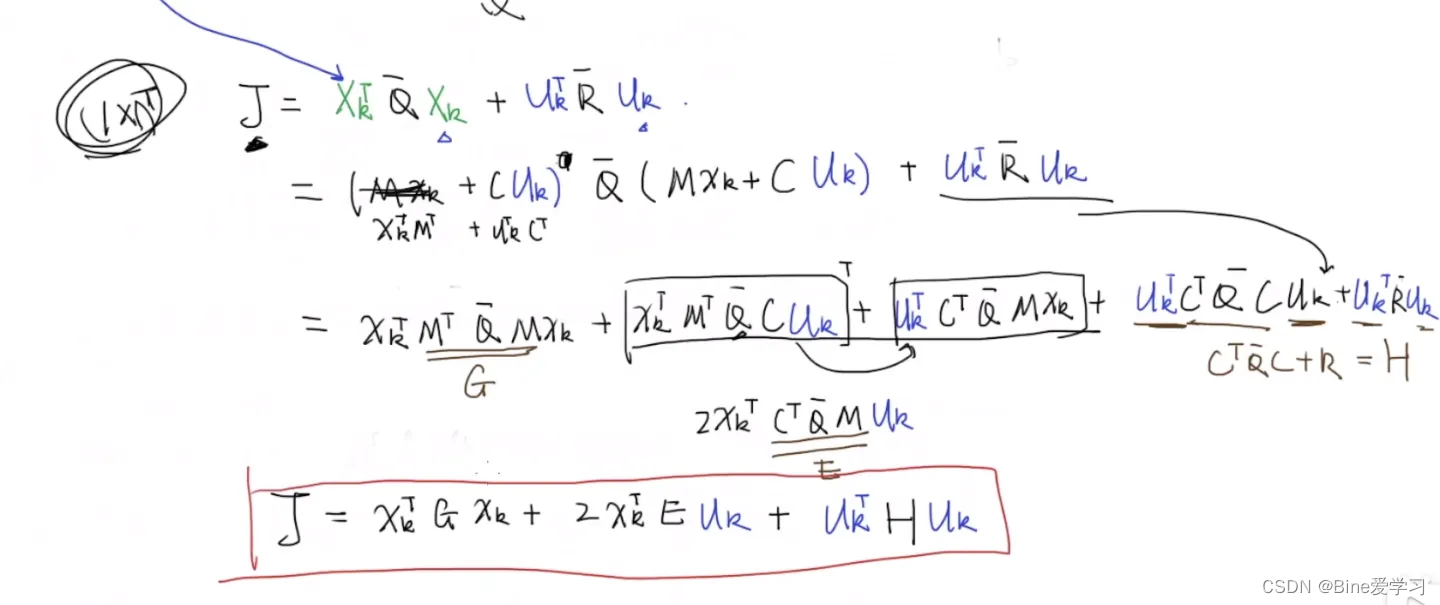 Q
(1×1)ᵀ J = Xₖᵀ Q̄ Xₖ + Uₖᵀ R̄ Uₖ .
= ( + C Uₖ) Q̄ (M xₖ + C Uₖ) + Uₖᵀ R̄ Uₖ
xₖᵀ Mᵀ + Uₖᵀ Cᵀ
= xₖᵀ Mᵀ Q̄ M xₖ + [xₖᵀ Mᵀ Q̄ C Uₖ]ᵀ + [Uₖᵀ Cᵀ Q̄ M xₖ] + Uₖᵀ Cᵀ Q̄ C Uₖ + Uₖᵀ R̄ Uₖ
G Cᵀ Q̄ C + R = H
2xₖᵀ Cᵀ Q̄ M Uₖ
E
J = xₖᵀ G xₖ + 2xₖᵀ E Uₖ + Uₖᵀ H Uₖ
CSDN @Bine爱学习